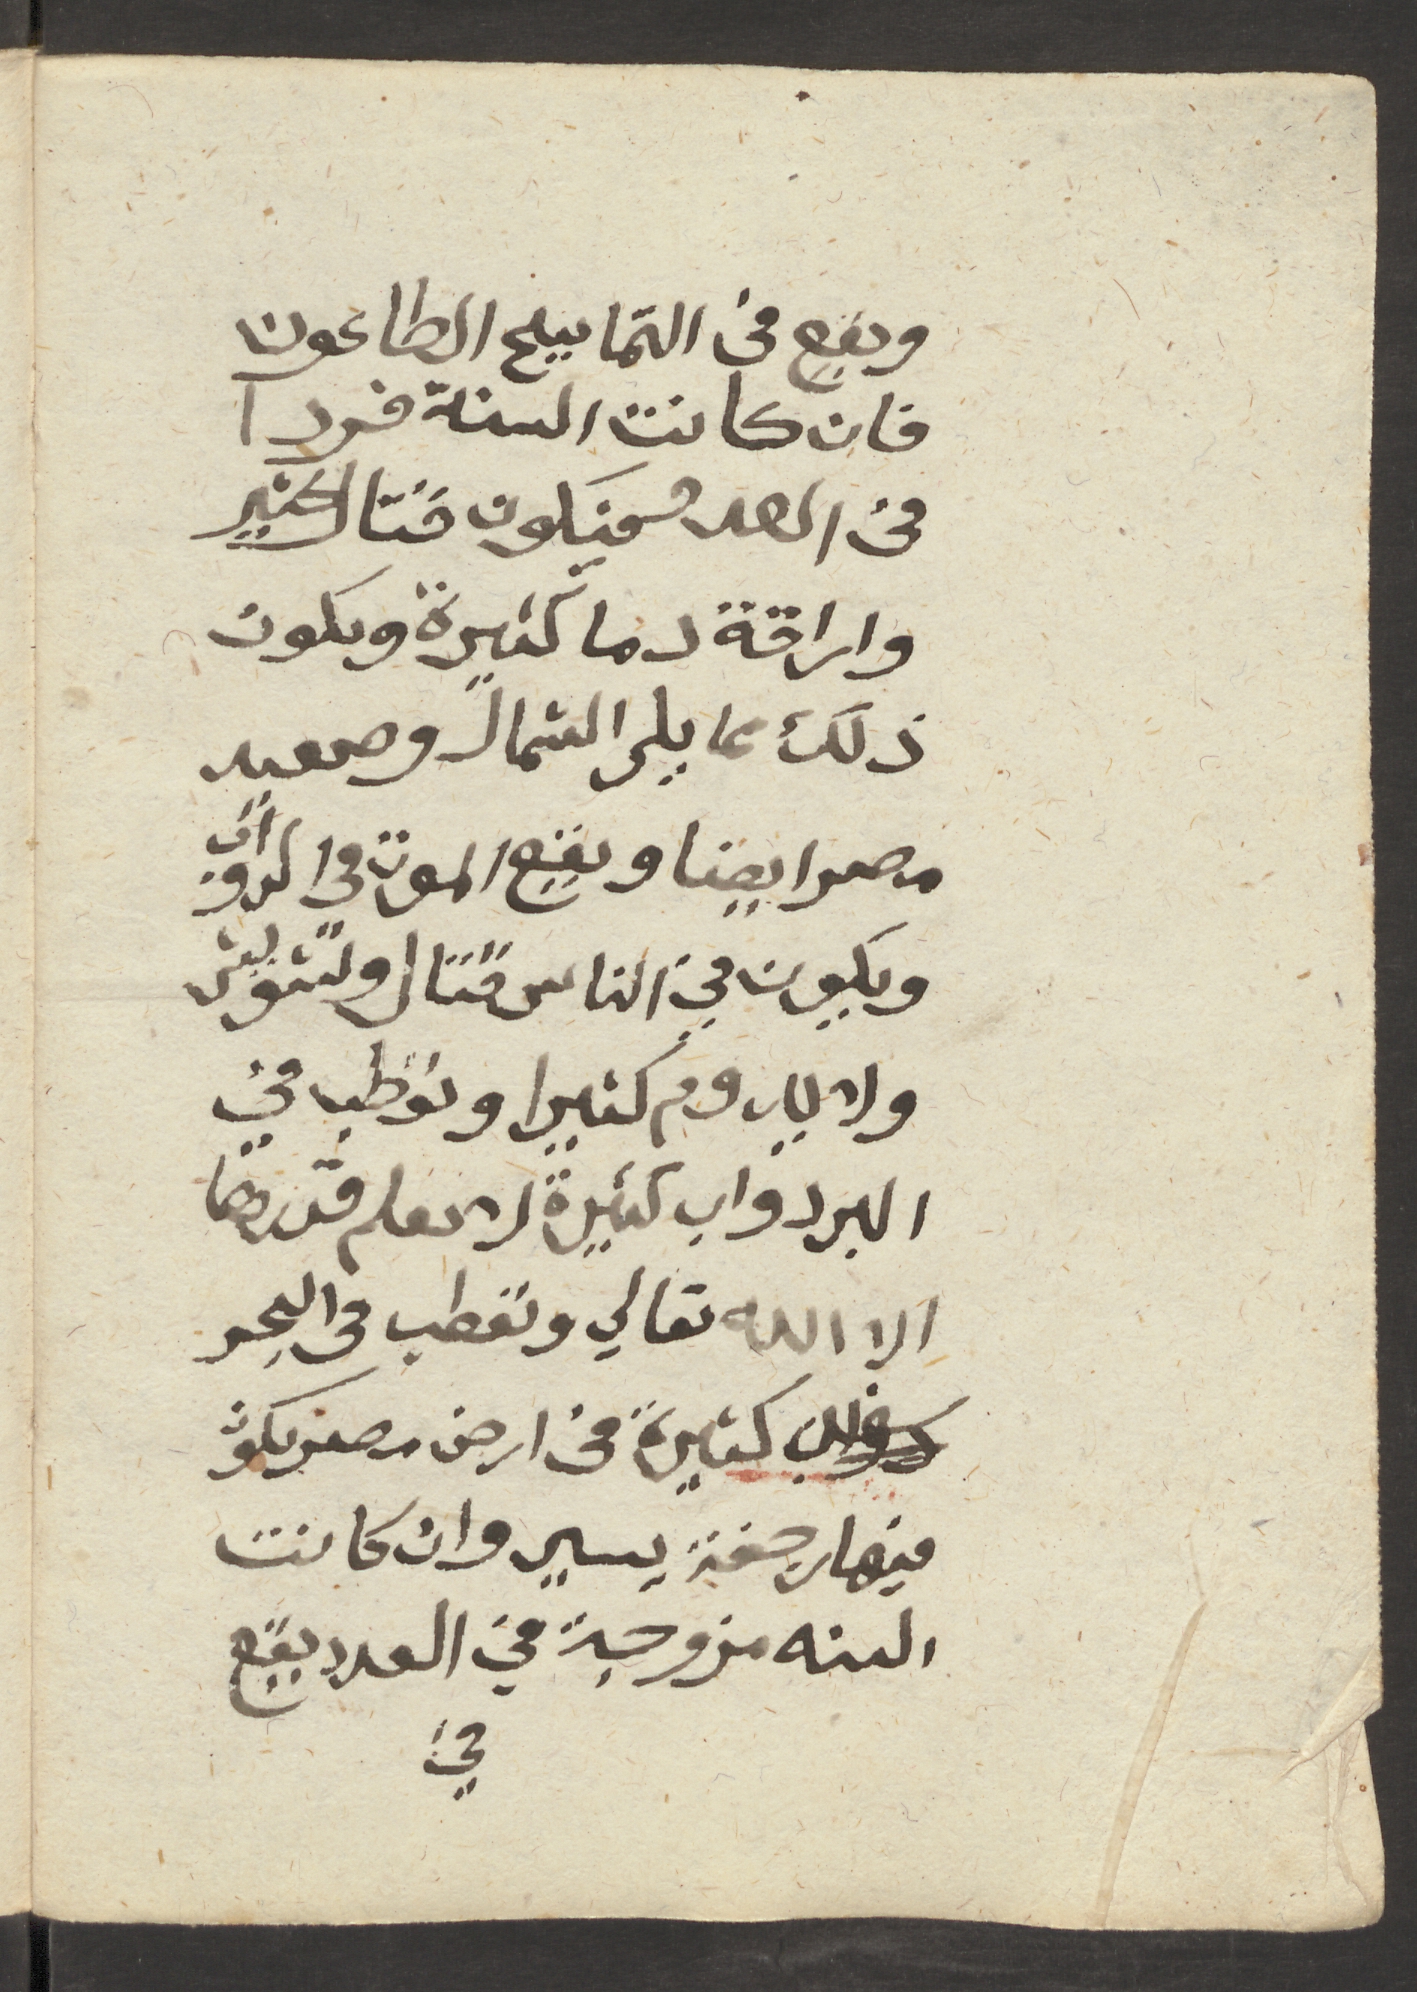 ويقع في التماسيح الطاعون
فان كانت السنة فردا
في العدد فيكون قتال كثير
واراقة دما كثيرة ويكون
ذلك مما يلي الشمال وصعيد
مصر ايضا ويقع الموت في الدواب
ويكون في الناس قتال وتشويش
ولا يدوم كثيرا وتقطب في
البر دواب كثيرة لا يعلم قدرها
الا الله تعالي وتقطب في البحر
كثيرة في ارض مصر يكون
فيها رجفة يسير وان كانت
السنه مزوجة في العدد يقع
في